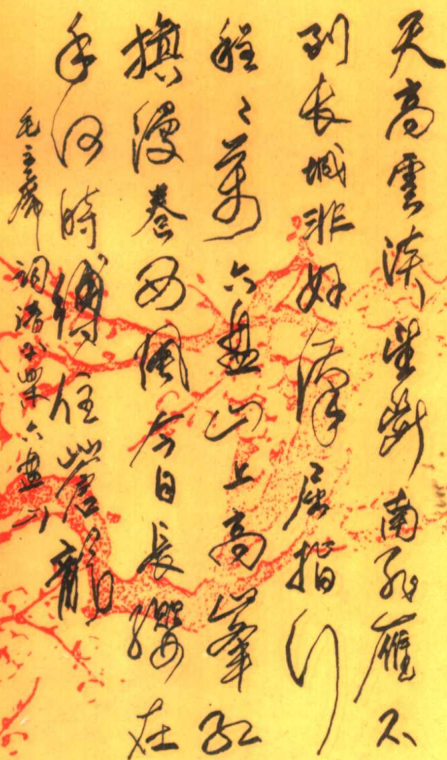 天高雲淡望斷南飛雁不
到长城非好漢屈指行
程二萬六盘山上高峯红
旗漫卷西風今日長纓在
手何時縛住蒼龍
毛主席词清平樂六盘山